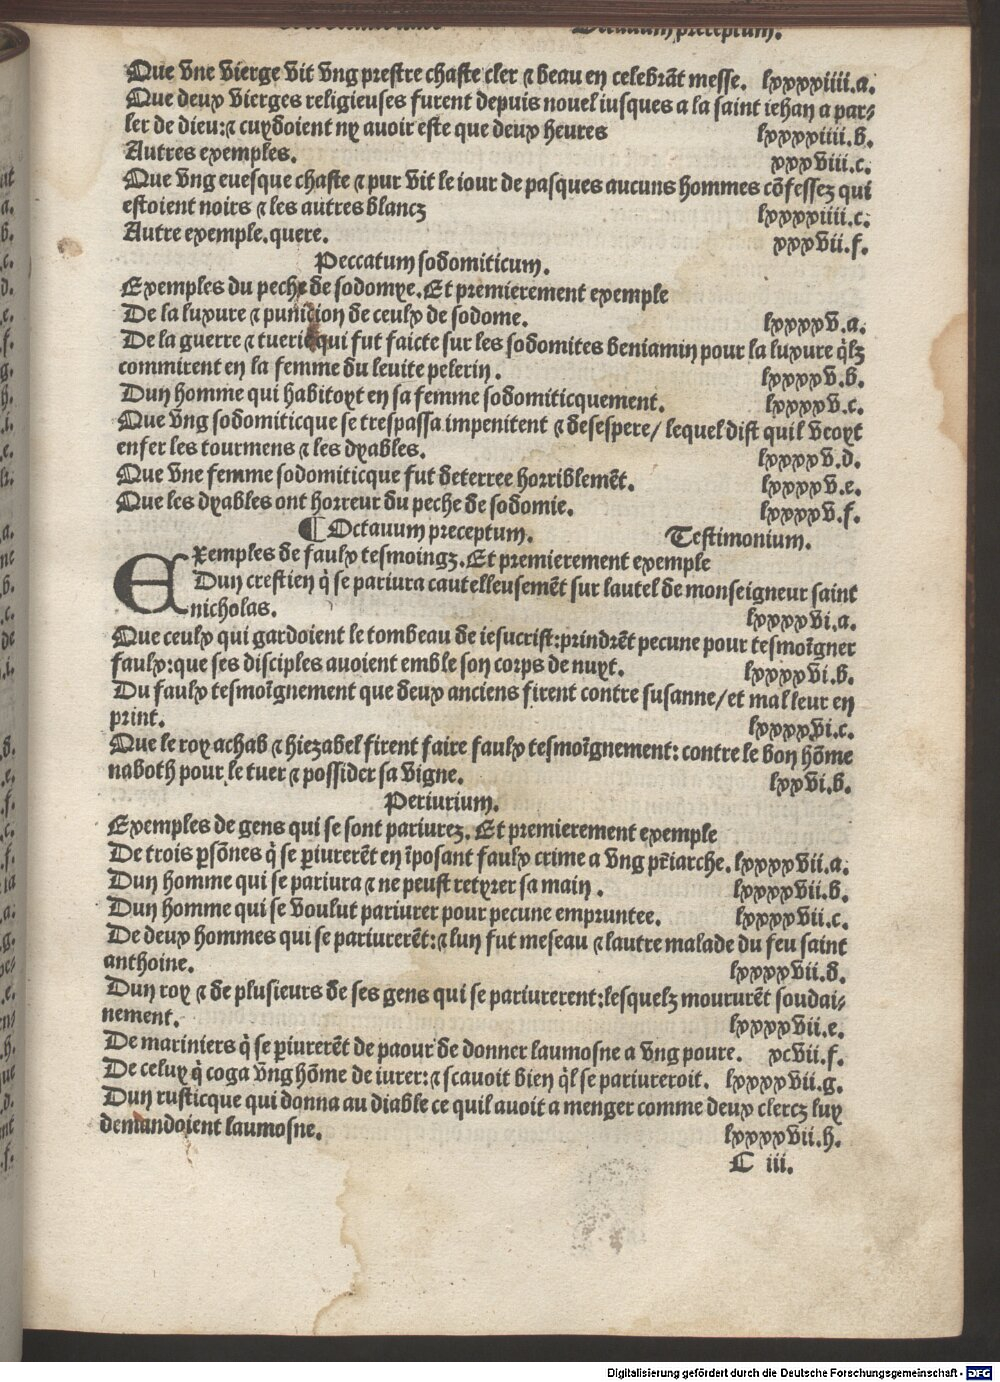 Octauum preceptum.
Que vne vierge vit vng prestre chaste cler ⁊ beau en celebrāt messe. lxxxxiiii.a.
Que deux vierges religieuses furent depuis nouel iusques a la saint iehan a par⸗
ler de dieu:⁊ cuydoient ny auoir este que deux heures lxxxxiiii.b.
Autres exemples. xxxviii.c.
Que vng euesque chaste ⁊ pur vit le iour de pasques aucuns hommes cōfessez qui
estoient noirs ⁊ les autres blancz lxxxxiiii.c.
Autre exemple.quere. xxxvii.f.
Peccatum sodomiticum.
Exemples du peche de sodomye.Et premierement exemple
De la luxure ⁊ punicion de ceulx de sodome. lxxxxv.a.
De la guerre ⁊ tuerie qui fut faicte sur les sodomites beniamin pour la luxure q̄lz
commirent en la femme du leuite pelerin. lxxxxv.b.
Dun homme qui habitoyt en sa femme sodomiticquement. lxxxxv.c.
Que vng sodomiticque se trespassa impenitent ⁊ desespere/ lequel dist quil veoyt
enfer les tourmens ⁊ les dyables. lxxxxv.d.
Que vne femme sodomiticque fut deterree horriblemēt. lxxxxv.e.
Que les dyables ont horreur du peche de sodomie. lxxxxv.f.
¶ Octauum preceptum. Testimonium.
Exemples de faulx tesmoingz.Et premierement exemple
Dun crestien q̄ se pariura cautelleusemēt sur lautel de monseigneur saint
nicholas. lxxxxvi.a.
Que ceulx qui gardoient le tombeau de iesucrist:prindrēt pecune pour tesmoīgner
faulx:que ses disciples auoient emble son corps de nuyt. lxxxxvi.b.
Du faulx tesmoīgnement que deux anciens firent contre susanne/et mal leur en
print. lxxxxvi.c.
Que le roy achab ⁊ hiezabel firent faire faulx tesmoīgnement: contre le bon hōme
naboth pour le tuer ⁊ possider sa vigne. lxxvi.b.
Periurium.
Exemples de gens qui se sont pariurez. Et premierement exemple
De trois p̄sōnes q̄ se p̄iurerēt en īposant faulx crime a vng pr̄iarche. lxxxxvii.a.
Dun homme qui se pariura ⁊ ne peust retyrer sa main . lxxxxvii.b.
Dun homme qui se voulut pariurer pour pecune empruntee. lxxxxvii.c.
De deux hommes qui se pariurerēt:⁊ lun fut meseau ⁊ lautre malade du feu saint
anthoine. lxxxxvii.d.
Dun roy ⁊ de plusieurs de ses gens qui se pariurerent:lesquelz moururēt soudai⸗
nement. lxxxxvii.e.
De mariniers q̄ se p̄iurerēt de paour de donner laumosne a vng poure. xcvii.f.
De celuy q̄ coga vng hōme de iurer:⁊ scauoit bien q̄l se pariureroit. lxxxxvii.g.
Dun rusticque qui donna au diable ce quil auoit a menger comme deux clercz luy
demandoient laumosne. lxxxxvii.h.
C iii.
Digitalisierung gefördert durch die Deutsche Forschungsgemeinschaft - DFG